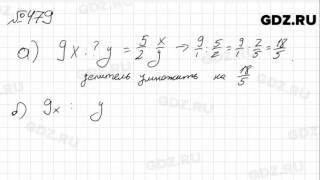 GDZ.RU
№479
а) 9x : ? y = 5/2 x/y → 9/1 : 5/2 = 9/1 · 2/5 = 18/5
делитель умножить на 18/5
б) 9x : y